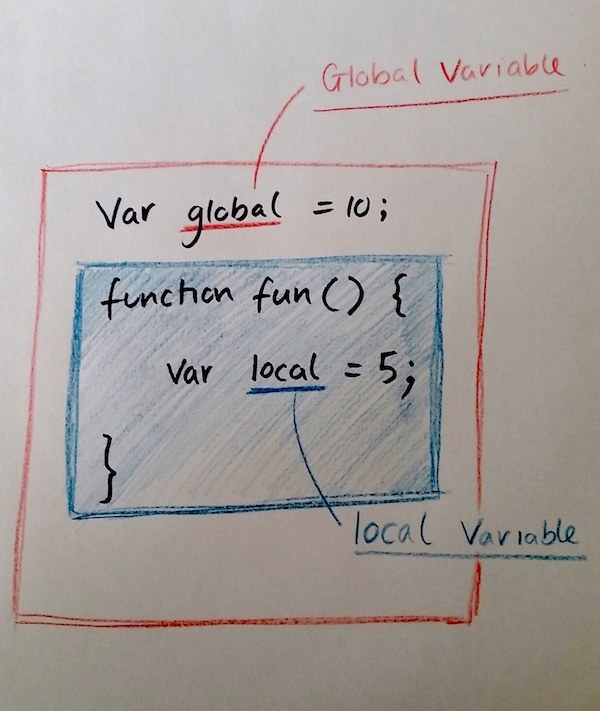 Global Variable
Var global = 10;
function fun() {
Var local = 5;
}
local Variable